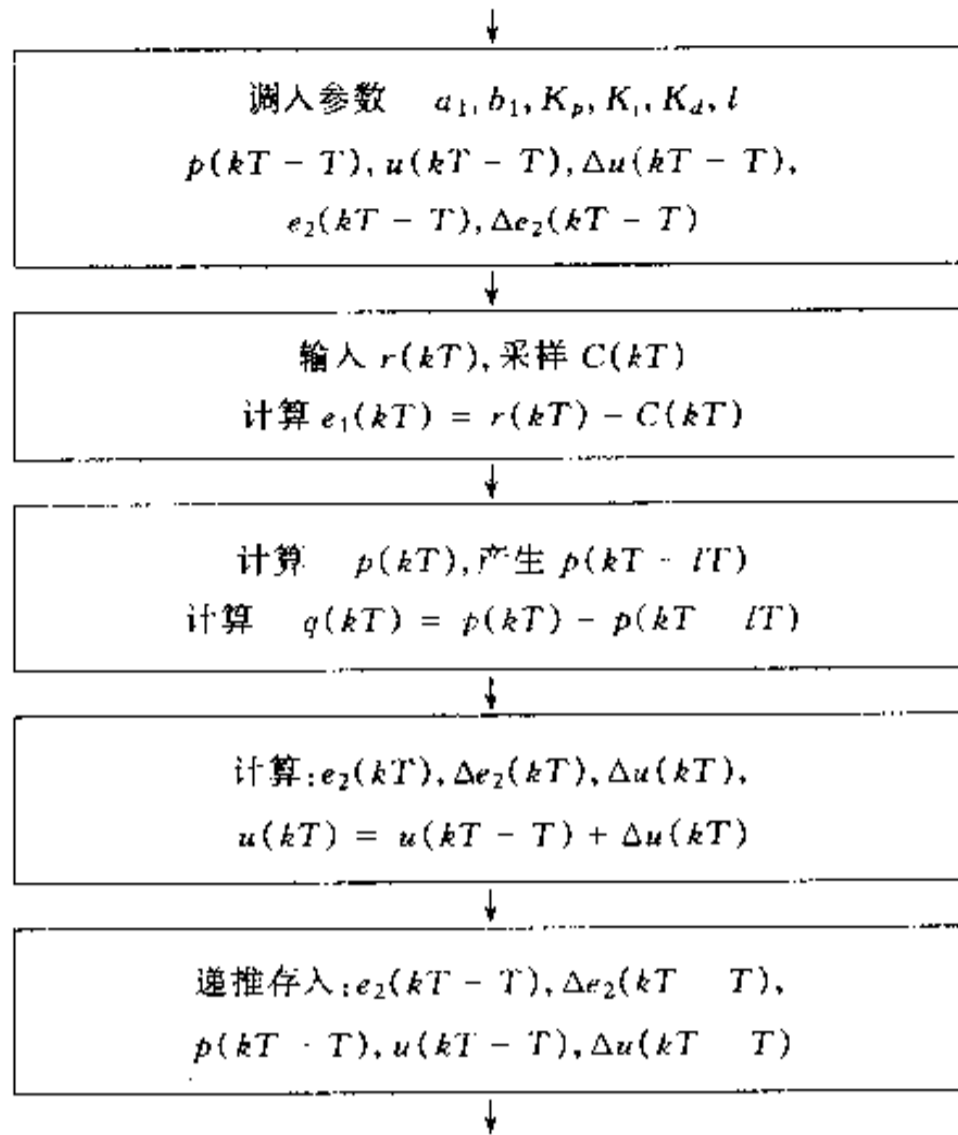 调入参数 a₁, b₁, Kₚ, Kᵢ, K_d, l
p(kT - T), u(kT - T), Δu(kT - T),
e₂(kT - T), Δe₂(kT - T)
输入 r(kT), 采样 C(kT)
计算 e₁(kT) = r(kT) - C(kT)
计算 p(kT), 产生 p(kT - lT)
计算 q(kT) = p(kT) - p(kT lT)
计算: e₂(kT), Δe₂(kT), Δu(kT),
u(kT) = u(kT - T) + Δu(kT)
递推存入: e₂(kT - T), Δe₂(kT T),
p(kT - T), u(kT - T), Δu(kT T)